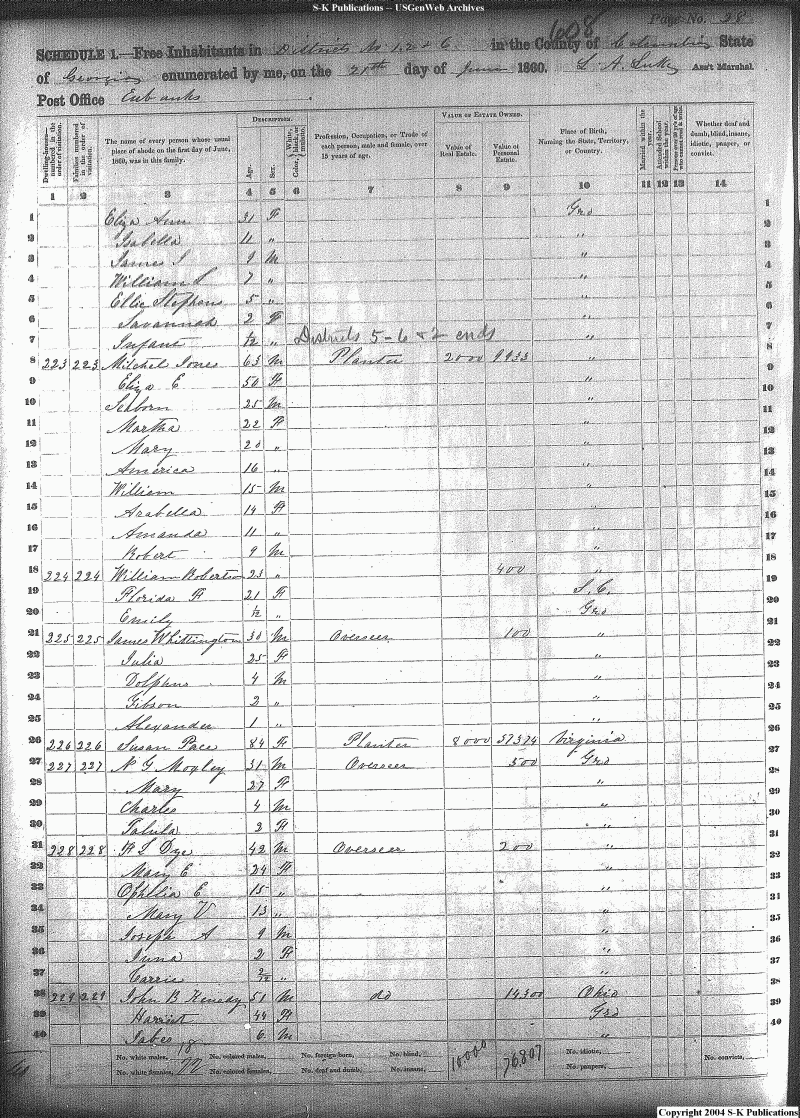 S-K Publications -- USGenWeb Archives
Page No. 28
608
SCHEDULE 1.—Free Inhabitants in Districts No 1.2 & 6 in the County of Columbia State
of Georgia enumerated by me, on the 21th day of June 1860. L A Luke Ass't Marshal.
Post Office Eubanks
Dwelling-houses—numbered in the order of visitation.
Families numbered in the order of visitation.
The name of every person whose usual place of abode on the first day of June, 1860, was in this family.
DESCRIPTION.
Age.
Sex.
Color, White, black, or mulatto.
Profession, Occupation, or Trade of each person, male and female, over 15 years of age.
VALUE OF ESTATE OWNED.
Value of Real Estate.
Value of Personal Estate.
Place of Birth, Naming the State, Territory, or Country.
Married within the year.
Attended School within the year.
Whether deaf and dumb, blind, insane, idiotic, pauper, or convict.
1 2 3 4 5 6 7 8 9 10 11 12 13 14
1 Eliza Ann 31 F Geo 1
2 Isabella 11 " " 2
3 James I 9 M " 3
4 William L 7 " " 4
5 Ellic Stephens 5 " " 5
6 Savannah 2 F " 6
7 Infant 1/12 " Districts 5-6 & 2 ends " 7
8 223 223 Mitchel Jones 63 M Planter 2000 9933 " 8
9 Eliza E 50 F " 9
10 Seaborn 25 M " 10
11 Martha 22 F " 11
12 Mary 20 " " 12
13 America 16 " " 13
14 William 15 M " 14
15 Arabella 14 F " 15
16 Amanda 11 " " 16
17 Robert 9 M " 17
18 224 224 William Robertson 23 " 400 " 18
19 Florida F 21 F S.C. 19
20 Emily /12 " Geo 20
21 225 225 James Whittington 30 M Overseer 100 " 21
22 Julia 25 F " 22
23 Dolphus 4 M " 23
24 Gibson 2 " " 24
25 Alexander 1 " " 25
26 226 226 Susan Pace 84 F Planter 8000 57374 Virginia 26
27 227 227 N G Mosley 31 M Overseer 500 Geo 27
28 Mary 27 F " 28
29 Charles 4 M " 29
30 Tabita 2 F " 30
31 228 228 H L Dye 42 M Overseer 200 " 31
32 Mary E 24 F " 32
33 Ophllia E 15 " " 33
34 Mary V 13 " " 34
35 Joseph A 9 M " 35
36 Juna 2 F " 36
37 Carrie /12 " " 37
38 229 229 John B Kenedy 51 M do 14300 Ohio 38
39 Harriet 44 F Geo 39
40 Jabes 6 M " 40
No. white males, 18 No. colored males, No. foreign born, No. blind, 10000 76,807 No. idiotic,
No. white females, 22 No. colored females, No. deaf and dumb, No. insane, No. paupers, No. convicts,
Copyright 2004 S-K Publications